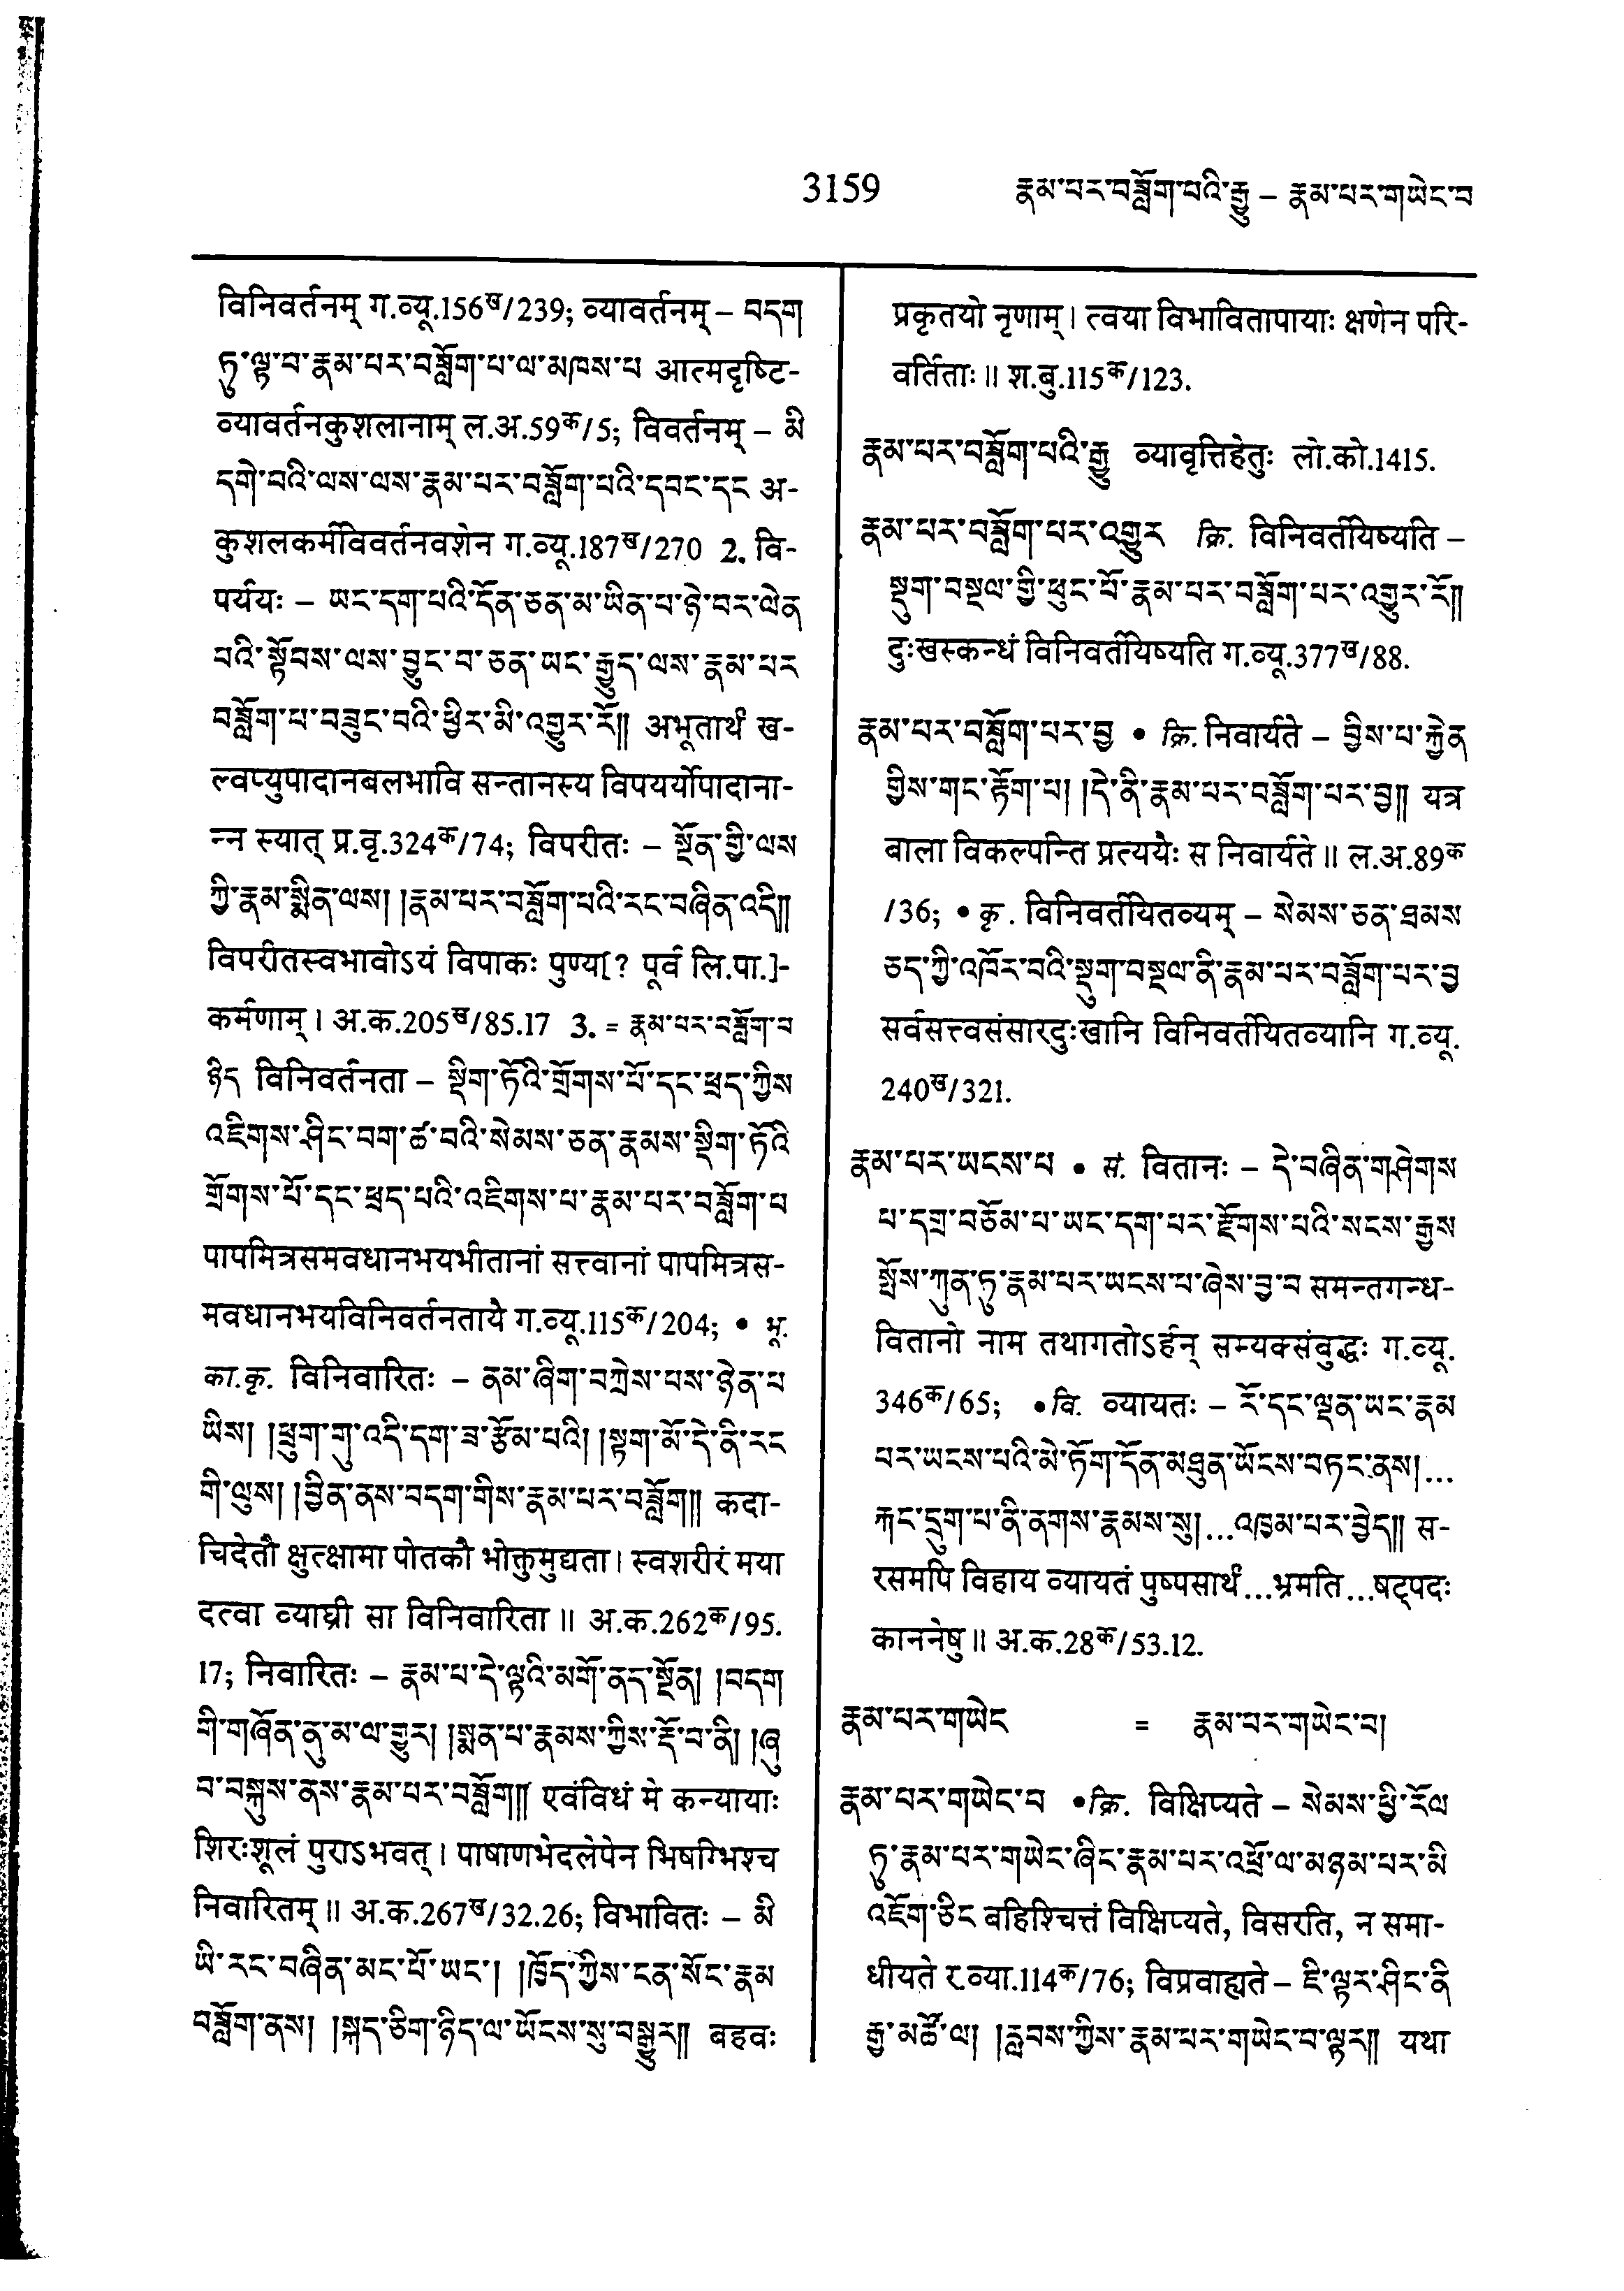 3159 རྣམ་པར་བཟློག་པའི་རྒྱུ – རྣམ་པར་གཡེང་བ
विनिवर्तनम् ग.व्यू.156ख/239; व्यावर्तनम् – བདག
ཏུ་ལྟ་བ་རྣམ་པར་བཟློག་པ་ལ་མཁས་པ आत्मदृष्टि-
व्यावर्तनकुशलानाम् ल.अ.59क/5; विवर्तनम् – མི
དགེ་བའི་ལས་ལས་རྣམ་པར་བཟློག་པའི་དབང་དང अ-
कुशलकर्मविवर्तनवशेन ग.व्यू.187ख/270 2. वि-
पर्ययः – ཡང་དག་པའི་དོན་ཅན་མ་ཡིན་པ་ཉེ་བར་ལེན
པའི་སྟོབས་ལས་བྱུང་བ་ཅན་ཡང་རྒྱུད་ལས་རྣམ་པར
བཟློག་པ་བཟུང་བའི་ཕྱིར་མི་འགྱུར་རོ།། अभूतार्थं ख-
ल्वप्युपादानबलभावि सन्तानस्य विपयर्योपादाना-
न्न स्यात् प्र.वृ.324क/74; विपरीतः – སྔོན་གྱི་ལས
ཀྱི་རྣམ་སྨིན་ལས། །རྣམ་པར་བཟློག་པའི་རང་བཞིན་འདི།།
विपरीतस्वभावोऽयं विपाकः पुण्य[? पूर्व लि.पा.]-
कर्मणाम्। अ.क.205ख/85.17 3. = རྣམ་པར་བཟློག་པ
ཉིད विनिवर्तनता – སྡིག་ཏོའི་གྲོགས་པོ་དང་ཕྲད་ཀྱིས
འཇིགས་ཤིང་བག་ཚ་བའི་སེམས་ཅན་རྣམས་སྡིག་ཏོའི
གྲོགས་པོ་དང་ཕྲད་པའི་འཇིགས་པ་རྣམ་པར་བཟློག་པ
पापमित्रसमवधानभयभीतानां सत्त्वानां पापमित्रस-
मवधानभयविनिवर्तनतायै ग.व्यू.115क/204; • भू.
का.कृ. विनिवारितः – ནམ་ཞིག་བཀྲེས་པས་ཉེན་པ
ཡིས། །ཕྲུག་གུ་འདི་དག་ཟ་རྩོམ་པའི། །སྟག་མོ་དེ་ནི་རང
གི་ལུས། །བྱིན་ནས་བདག་གིས་རྣམ་པར་བཟློག།། कदा-
चिदेतौ क्षुत्क्षामा पोतकौ भोक्तुमुद्यता। स्वशरीरं मया
दत्वा व्याघ्री सा विनिवारिता॥ अ.क.262क/95.
17; निवारितः – རྣམ་པ་དེ་ལྟའི་མགོ་ནད་སྔོན། །བདག
གི་གཞོན་ནུ་མ་ལ་གྱུར། །སྨན་པ་རྣམས་ཀྱིས་རྡོ་བ་ནི། །ཞུ
བ་བསྐུས་ནས་རྣམ་པར་བཟློག།། एवंविधं मे कन्यायाः
शिरःशूलं पुराऽभवत्। पाषाणभेदलेपेन भिषग्भिश्च
निवारितम्॥ अ.क.267ख/32.26; विभावितः – མི
ཡི་རང་བཞིན་མང་པོ་ཡང་། །ཁྱོད་ཀྱིས་ངན་སོང་རྣམ
བཟློག་ནས། །སྐད་ཅིག་ཉིད་ལ་ཡོངས་སུ་བསྒྱུར།། बहवः
प्रकृतयो नृणाम्। त्वया विभावितापायाः क्षणेन परि-
वर्तिताः॥ श.बु.115क/123.
རྣམ་པར་བཟློག་པའི་རྒྱུ व्यावृत्तिहेतुः लो.को.1415.
རྣམ་པར་བཟློག་པར་འགྱུར क्रि. विनिवर्तयिष्यति –
སྡུག་བསྔལ་གྱི་ཕུང་པོ་རྣམ་པར་བཟློག་པར་འགྱུར་རོ།།
दुःखस्कन्धं विनिवर्तयिष्यति ग.व्यू.377ख/88.
རྣམ་པར་བཟློག་པར་བྱ • क्रि. निवार्यते – བྱིས་པ་རྐྱེན
གྱིས་གང་རྟོག་པ། །དེ་ནི་རྣམ་པར་བཟློག་པར་བྱ།། यत्र
बाला विकल्पन्ति प्रत्ययैः स निवार्यते॥ ल.अ.89क
/36; • कृ. विनिवर्तयितव्यम् – སེམས་ཅན་ཐམས
ཅད་ཀྱི་འཁོར་བའི་སྡུག་བསྔལ་ནི་རྣམ་པར་བཟློག་པར་བྱ
सर्वसत्त्वसंसारदुःखानि विनिवर्तयितव्यानि ग.व्यू.
240ख/321.
རྣམ་པར་ཡངས་པ • सं. वितानः – དེ་བཞིན་གཤེགས
པ་དགྲ་བཅོམ་པ་ཡང་དག་པར་རྫོགས་པའི་སངས་རྒྱས
སྤོས་ཀུན་ཏུ་རྣམ་པར་ཡངས་པ་ཞེས་བྱ་བ समन्तगन्ध-
वितानो नाम तथागतोऽर्हन् सम्यक्संबुद्धः ग.व्यू.
346क/65; • वि. व्यायतः – རོ་དང་ལྡན་ཡང་རྣམ
པར་ཡངས་པའི་མེ་ཏོག་དོན་མཐུན་ཡོངས་བཏང་ནས།...
རྐང་དྲུག་པ་ནི་ནགས་རྣམས་སུ།...འཁྱམ་པར་བྱེད།། स-
रसमपि विहाय व्यायतं पुष्पसार्थं...भ्रमति...षट्पदः
काननेषु॥ अ.क.28क/53.12.
རྣམ་པར་གཡེང = རྣམ་པར་གཡེང་བ།
རྣམ་པར་གཡེང་བ • क्रि. विक्षिप्यते – སེམས་ཕྱི་རོལ
ཏུ་རྣམ་པར་གཡེང་ཞིང་རྣམ་པར་འཕྲོ་ལ་མཉམ་པར་མི
འཇོག་ཅིང बहिश्चित्तं विक्षिप्यते, विसरति, न समा-
धीयते र.व्या.114क/76; विप्रवाह्यते – ཇི་ལྟར་ཤིང་ནི
རྒྱ་མཚོ་ལ། །རླབས་ཀྱིས་རྣམ་པར་གཡེང་བ་ལྟར།། यथा